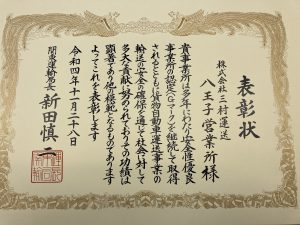 表彰状
株式会社三村運送
八王子営業所様
貴事業所は多年にわたり安全性優良
事業所の認定(Gマーク)を継続して取得
されるとともに貨物自動車運送事業の
輸送の安全の確保を通じて社会に対して
多大な貢献に努められておりその功績は
顕著であり他の模範となるものであります
よってこれを表彰します
令和四年十一月二十八日
関東運輸局長 新田慎二